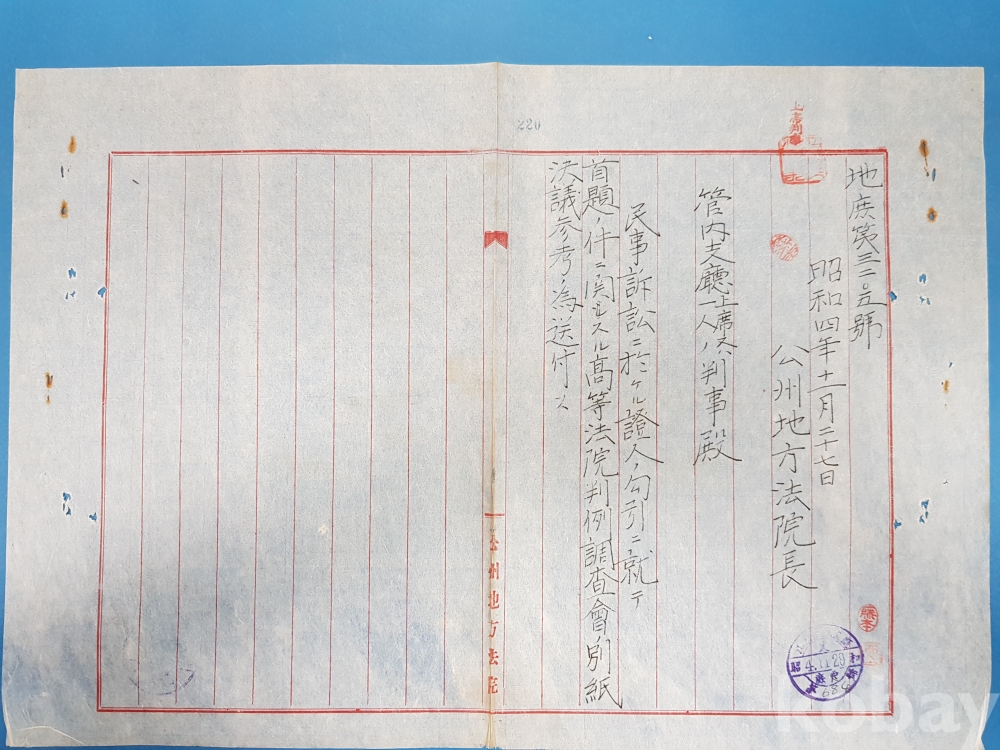 上席判事
地庶第三二〇五號
昭和四年十一月二十七日
公州地方法院長
管内支廳上席又ハ一人ノ判事殿
民事訴訟ニ於ケル證人ノ勾引ニ就テ
首題ノ件ニ関スル高等法院判例調査會別紙
決議参考ノ為送付ス
公州地方法院
220
4.11.29
kobay